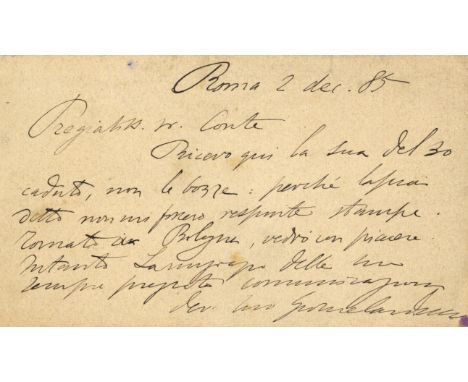 Roma 2 dec. 85
Pregiatiss. Sr. Conte
Ricevo qui la sua del 30
caduto, non le bozze: perché
detto non mi respinte stampe.
Tornato a Bologna, vedrò con piacere.
Intanto La delle sue
sempre pregiate comunicazioni
dev. suo